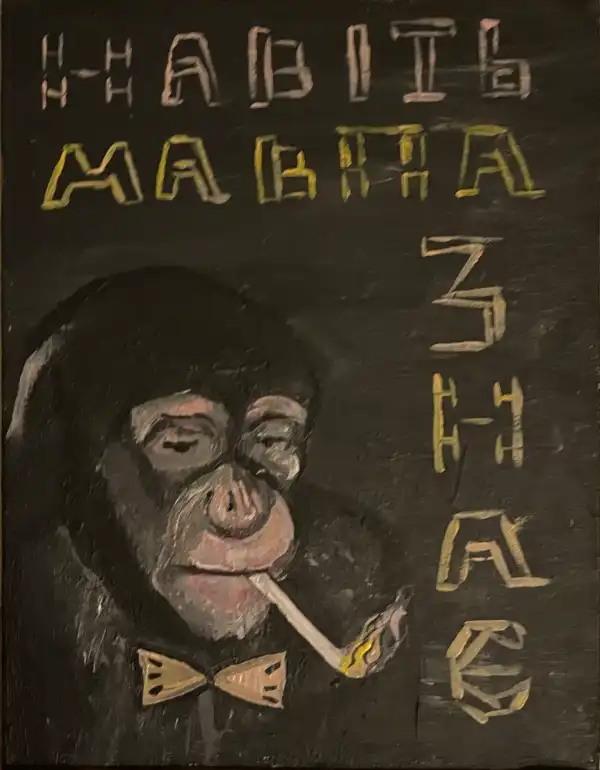 НАВІТЬ
МАВПА
ЗНАЄ